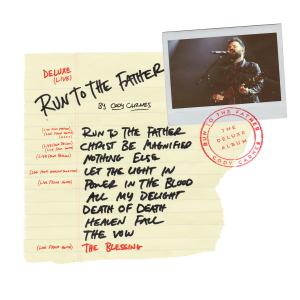 DELUXE
(LIVE)
RUN TO THE FATHER
BY CODY CARNES
RUN TO THE FATHER
CHRIST BE MAGNIFIED
NOTHING ELSE
LET THE LIGHT IN
POWER IN THE BLOOD
ALL MY DELIGHT
DEATH OF DEATH
HEAVEN FALL
THE VOW
THE BLESSING
RUN TO THE FATHER
THE
DELUXE
ALBUM
CODY CARNES